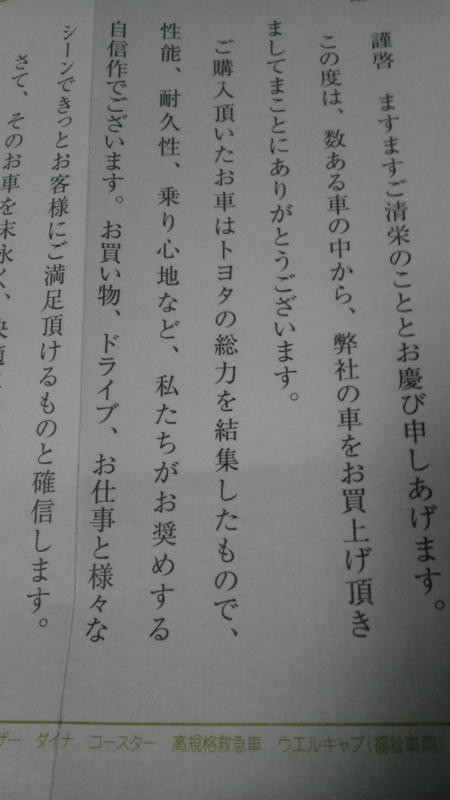 謹啓　ますますご清栄のこととお慶び申しあげます。
この度は、数ある車の中から、弊社の車をお買上げ頂き
ましてまことにありがとうございます。
ご購入頂いたお車はトヨタの総力を結集したもので、
性能、耐久性、乗り心地など、私たちがお奨めする
自信作でございます。お買い物、ドライブ、お仕事と様々な
シーンできっとお客様にご満足頂けるものと確信します。
さて、そのお車を末永く、快適
ザー　ダイナ　コースター　高規格救急車　ウエルキャブ(福祉車両)